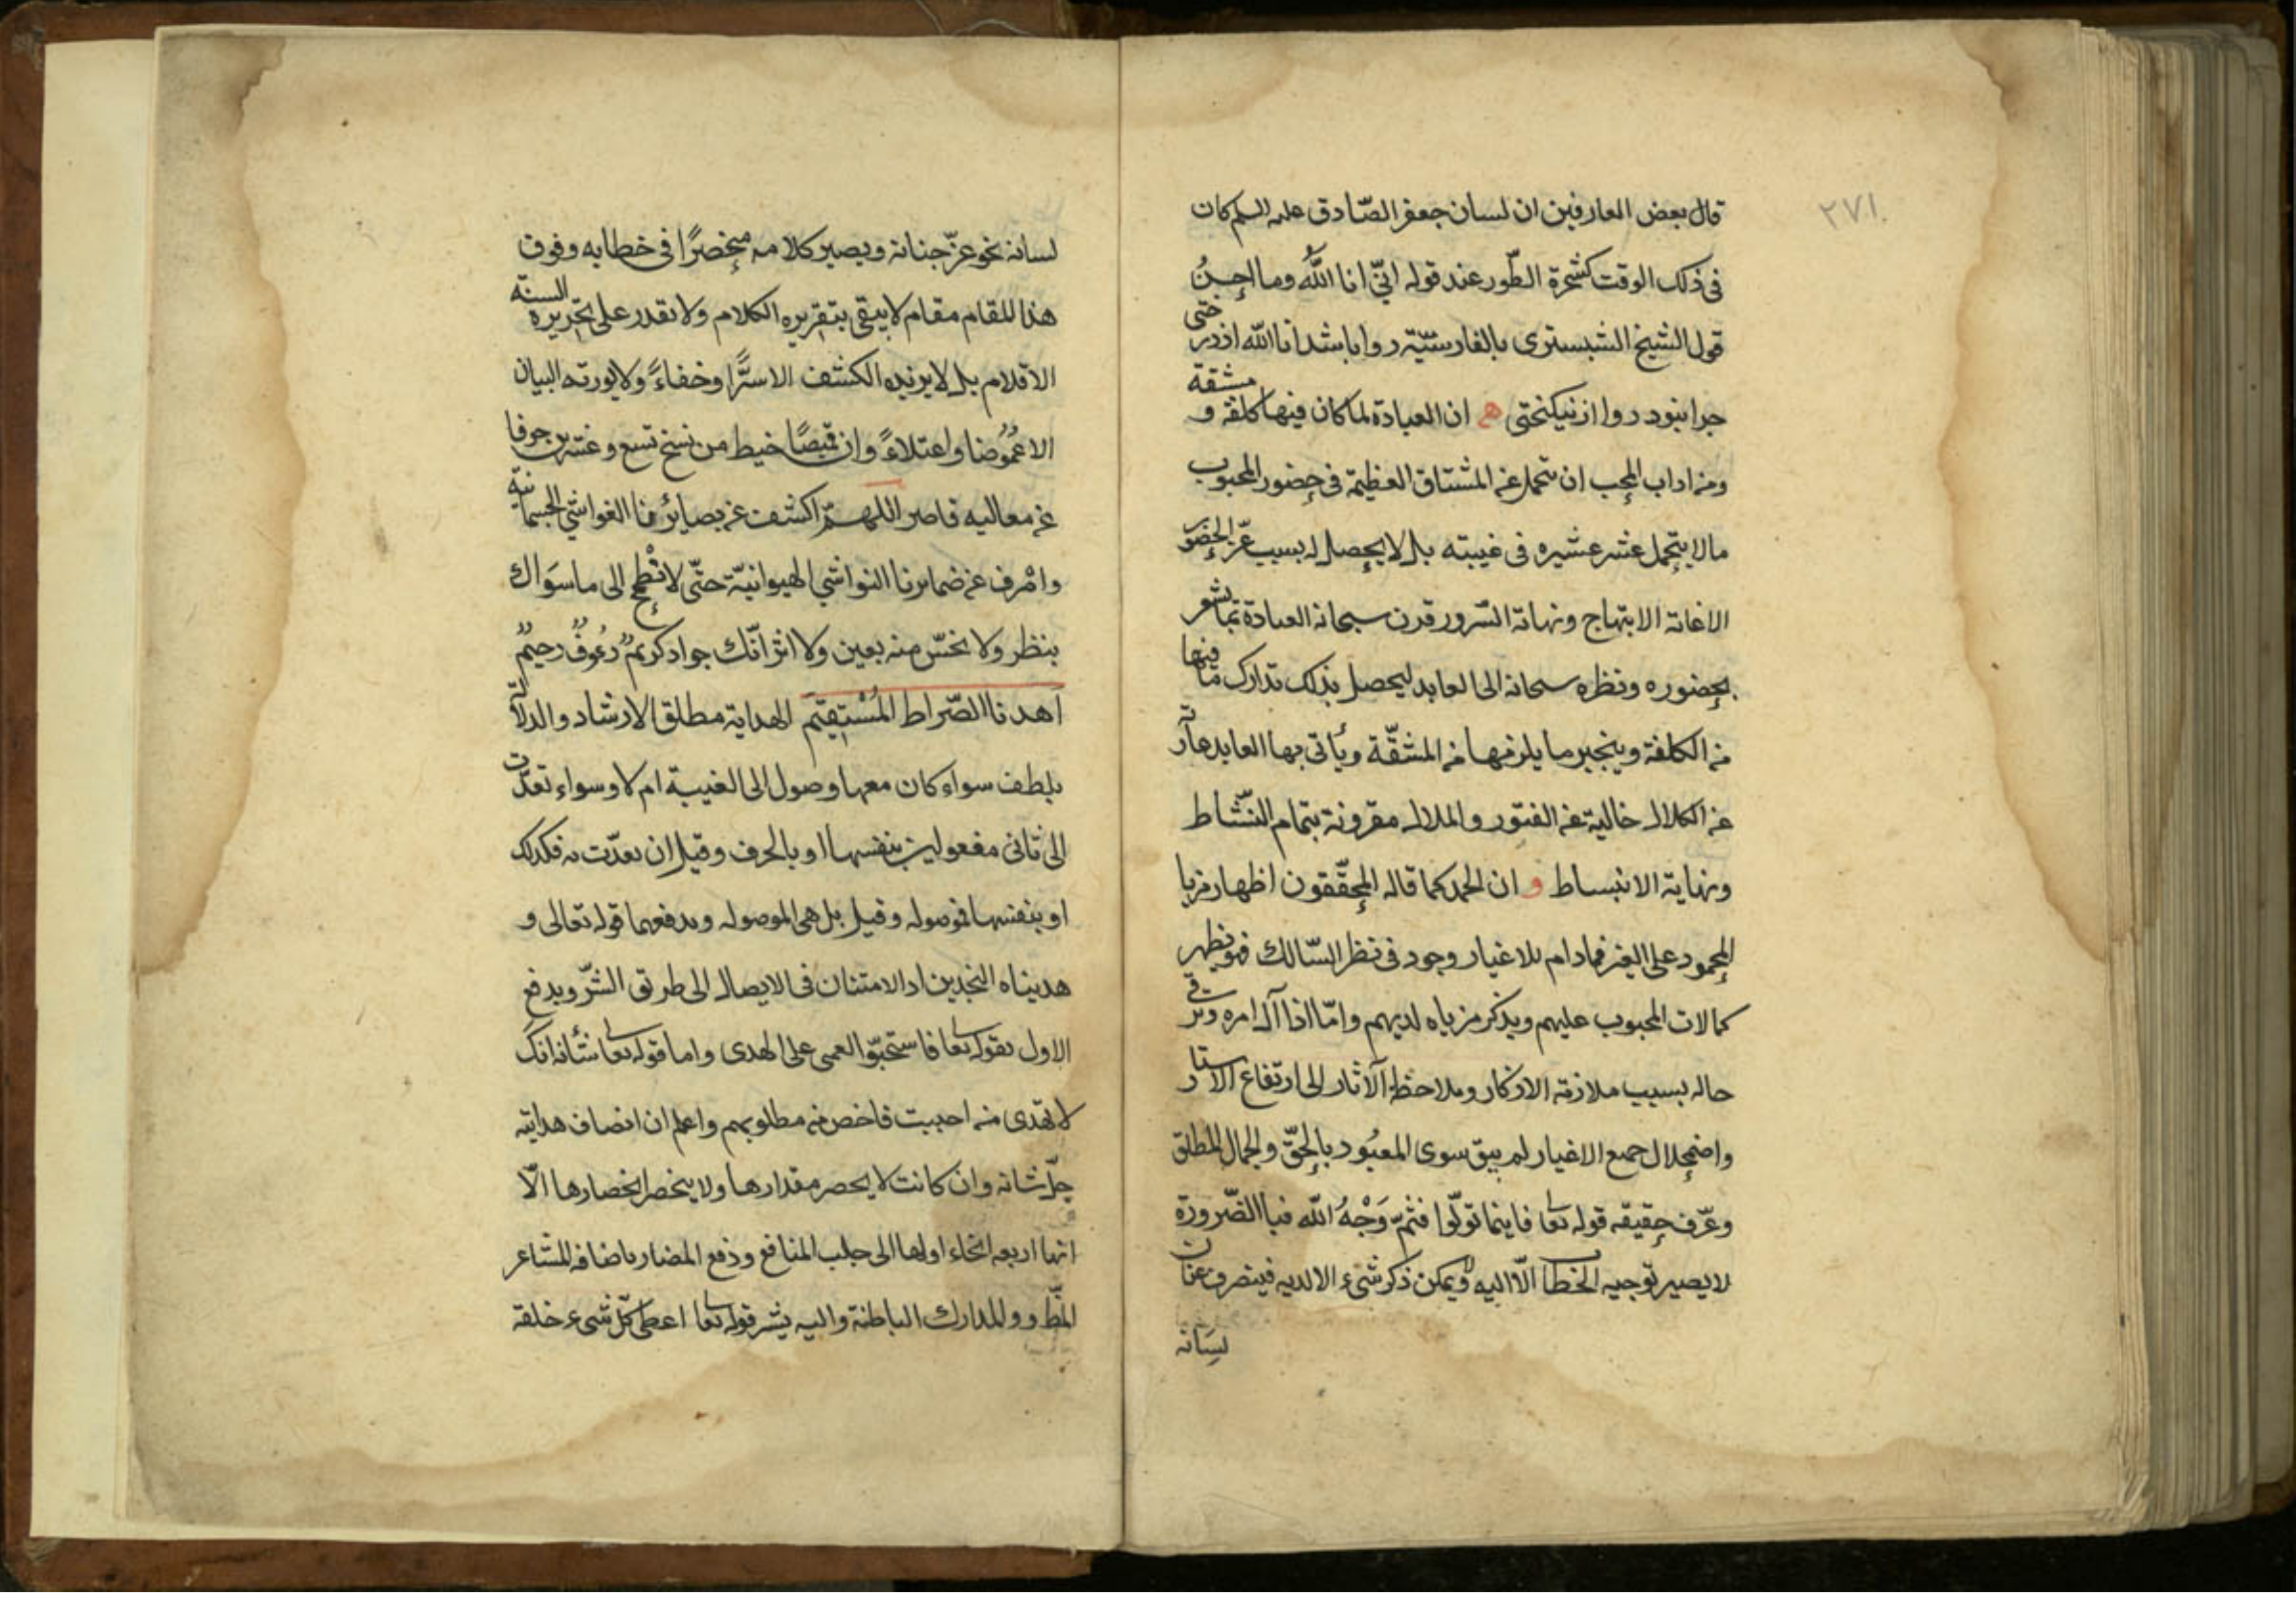 ٢٧١
قال بعض العارفين ان لسان جعفر الصّادق عليه السلم كان
فى ذلك الوقت كشجرة الطّور عند قوله انّى انا اللّٰه وما احسنُ
قول الشيخ الشبسترى بالفارسيّة روا باشد انا اللّه از درختى
جرا نبود روا از نيكبختى ه ان العبادة لما كان فيها كلفة و مشقة
ومن اداب المحب ان يتحمل عن المشتاق العظيمة فى حضور المحبوب
مالا يتحمل عشر عشيره فى غيبته بل لا يحصل له بسبب عزّ الحضور
الاغاية الابتهاج ونهاية السّرور قرن سبحانه العبادة بما يشعر
بحضوره ونظره سبحانه الى العابد ليحصل بذلك تدارك ما فيها
من الكلفة وينجبر ما يلزمها من المشقّة ويأتى بها العابد عارية
عن الكلال خالية عن الفتور والملال مقرونة بتمام النّشاط
ونهاية الانبساط و ان الحمد كما قاله المحقّقون اظهار مزيا
المحمود على الغير فمادام للاغيار وجود فى نظر السّالك فهو يظهر
كمالات المحبوب عليهم ويذكر مزياه لديهم وامّا اذا آل امره وترقى
حاله بسبب ملازمة الاذكار وملاحظة الآثار الى ارتفاع الاستار
واضمحلال جميع الاغيار لم يبق سوى المعبُود بالحقّ والجمال المطلق
وعرّف حقيقه قوله تعا فاينما تولّوا فثمّ وَجْهُ اللّه فبا الضّرورة
لا يصير توجيه الخطاب الّا اليه ولا يمكن ذكر شىء الا لديه فينصرف عنان
لسَانه
لسانه نحو عزّ جنانه ويصير كلامه منحصرًا فى خطابه وفوق
هذا المقام مقام لا يبقى بتقريره الكلام ولا تقدر على تحريره السنة
الاقلام بل لا يزيده الكشف الا سترًا وخفاءً ولا يورثه البيان
الا غمُوضا واعتلاءً وان قميصًا خيط من نسخ تسع وعشرين حرفا
عن معاليه قاصر اللهمّ اكشف عن بصائرنا الغواشى الجسمانية
واصرف عن ضمائرنا النواشى الهيوانيّة حتّى لا تطمح الى ما سوَاك
بنظر ولا نحسّ منه بعين ولا اثر انّك جواد كريمٌ رءُوفٌ رحيمٌ
اهدنا الصّراط المُسْتقيم الهداية مطلق الارشاد والدلالة
بلطف سواء كان معها وصول الى الغيبة ام لا وسواء تعدّت
الى ثانى مفعولين بنفسها او بالحرف وقيل ان تعدّت به فكذلك
او بنفسها فموصوله وقيل بل هى الموصوله ويدفعهما قوله تعالى و
هديناه النجدين اد الامتنان فى الايصال الى طريق الشّر ويدفع
الاول بقوله تعا فاستحبّوا العمى على الهدى واما قوله تعا شأنه انك
لا تهدى من احببت فاخص من مطلوبهم واعلم ان اصناف هدايته
جلّ شانه وان كانت لا يحصر مقدارها ولا ينحصر انحصارها الّا
انها اربعه انحاء اولها الى جلب المنافع ودفع المضار باضافه المشاعر
الظّ و والمدارك الباطنة واليه يشر قوله تعا اعطى كلّ شىء خلقه